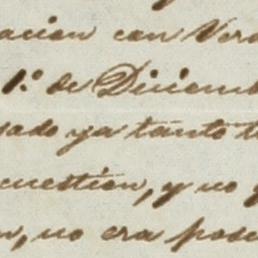 acion con Vera
1.º de Diciemb
sado ya tanto t
cuestion, y no
n, no era pos